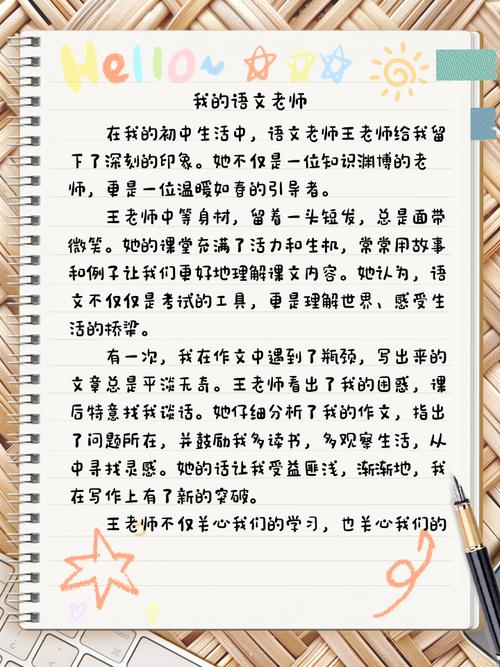 Hello~
我的语文老师
在我的初中生活中，语文老师王老师给我留
下了深刻的印象。她不仅是一位知识渊博的老
师，更是一位温暖如春的引导者。
王老师中等身材，留着一头短发，总是面带
微笑。她的课堂充满了活力和生机，常常用故事
和例子让我们更好地理解课文内容。她认为，语
文不仅仅是考试的工具，更是理解世界、感受生
活的桥梁。
有一次，我在作文中遇到了瓶颈，写出来的
文章总是平淡无奇。王老师看出了我的困惑，课
后特意找我谈话。她仔细分析了我的作文，指出
了问题所在，并鼓励我多读书，多观察生活，从
中寻找灵感。她的话让我受益匪浅，渐渐地，我
在写作上有了新的突破。
王老师不仅关心我们的学习，也关心我们的